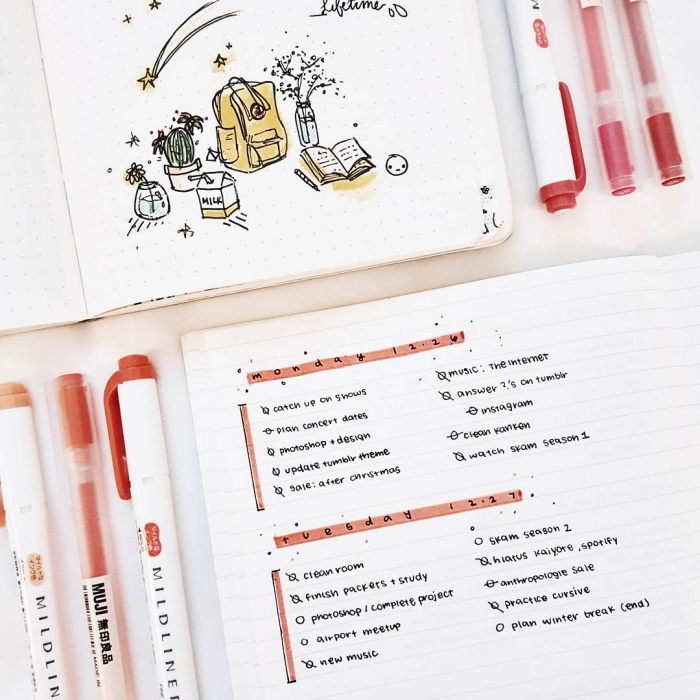 Lifetime
MILK
monday 12.26
catch up on shows
plan concert dates
photoshop + design
update tumblr theme
sale: after christmas
music: The internet
answer ?'s on tumblr
instagram
clean kanken
watch skam season 1
tuesday 12.27
clean room
finish packers + study
photoshop / complete project
airport meetup
new music
skam season 2
hiatus kaiyote, spotify
anthropologie sale
practice cursive
plan winter break (end)
MILDLINE
MUJI 無印良品
MILDLINER